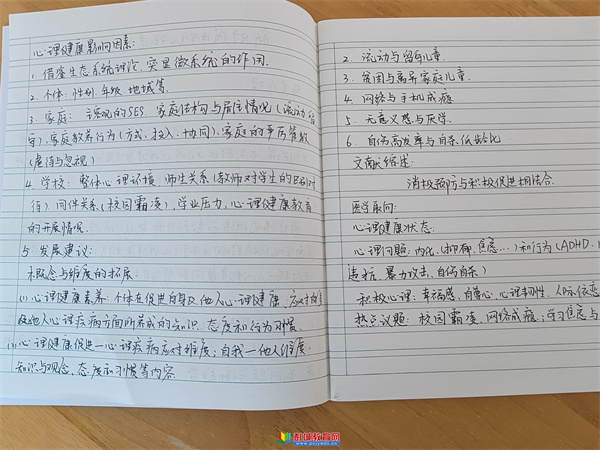 心理健康影响因素:
1. 借鉴生态系统理论, 突显微系统的作用.
2. 个体: 性别. 年级. 地域等.
3. 家庭: 客观的SES. 家庭结构与居住情况(流动 留
守), 家庭教养行为(方式. 投入. 协同), 家庭的事厉管教
(虐待与忽视)
4. 学校: 整体心理环境. 师生关系(教师对学生的区别对
待) 同伴关系(校园霸凌), 学业压力, 心理健康教育
的开展情况.
5. 发展建议:
未概念与维度的拓展
(1) 心理健康素养: 个体在促进自身及他人心理健康. 应对自身
及他人心理疾病方面所养成的知识. 态度和行为习惯.
(2) 心理健康促进—心理疾病应对维度; 自我—他人维度;
知识与观念, 态度和习惯等内容
2. 流动与留守儿童
3. 贫困与离异家庭儿童.
4. 网络与手机成瘾
5. 无意义感与厌学.
6. 自伤高发率与自杀低龄化
文献综述:
消极预防与积极促进相结合.
医学取向:
心理健康状态.
心理问题: 内化(抑郁. 焦虑...)和行为(ADHD.
违抗. 暴力攻击. 自伤自杀)
积极心理: 幸福感. 自尊心. 心理韧性. 人际依恋
热点议题: 校园霸凌. 网络成瘾; 学习焦虑与
教育网